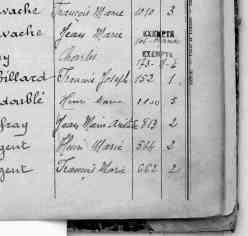 vache François Marie 1010 3
vache Jean Marie EXEMPTÉ
y Charles EXEMPTÉ
Billard Francis Joseph 152 1
dorblé Henri Marie 1100 5
fray Jean Marie 813 2
gent Henri Marie 564 2
gent Francis Marie 662 2